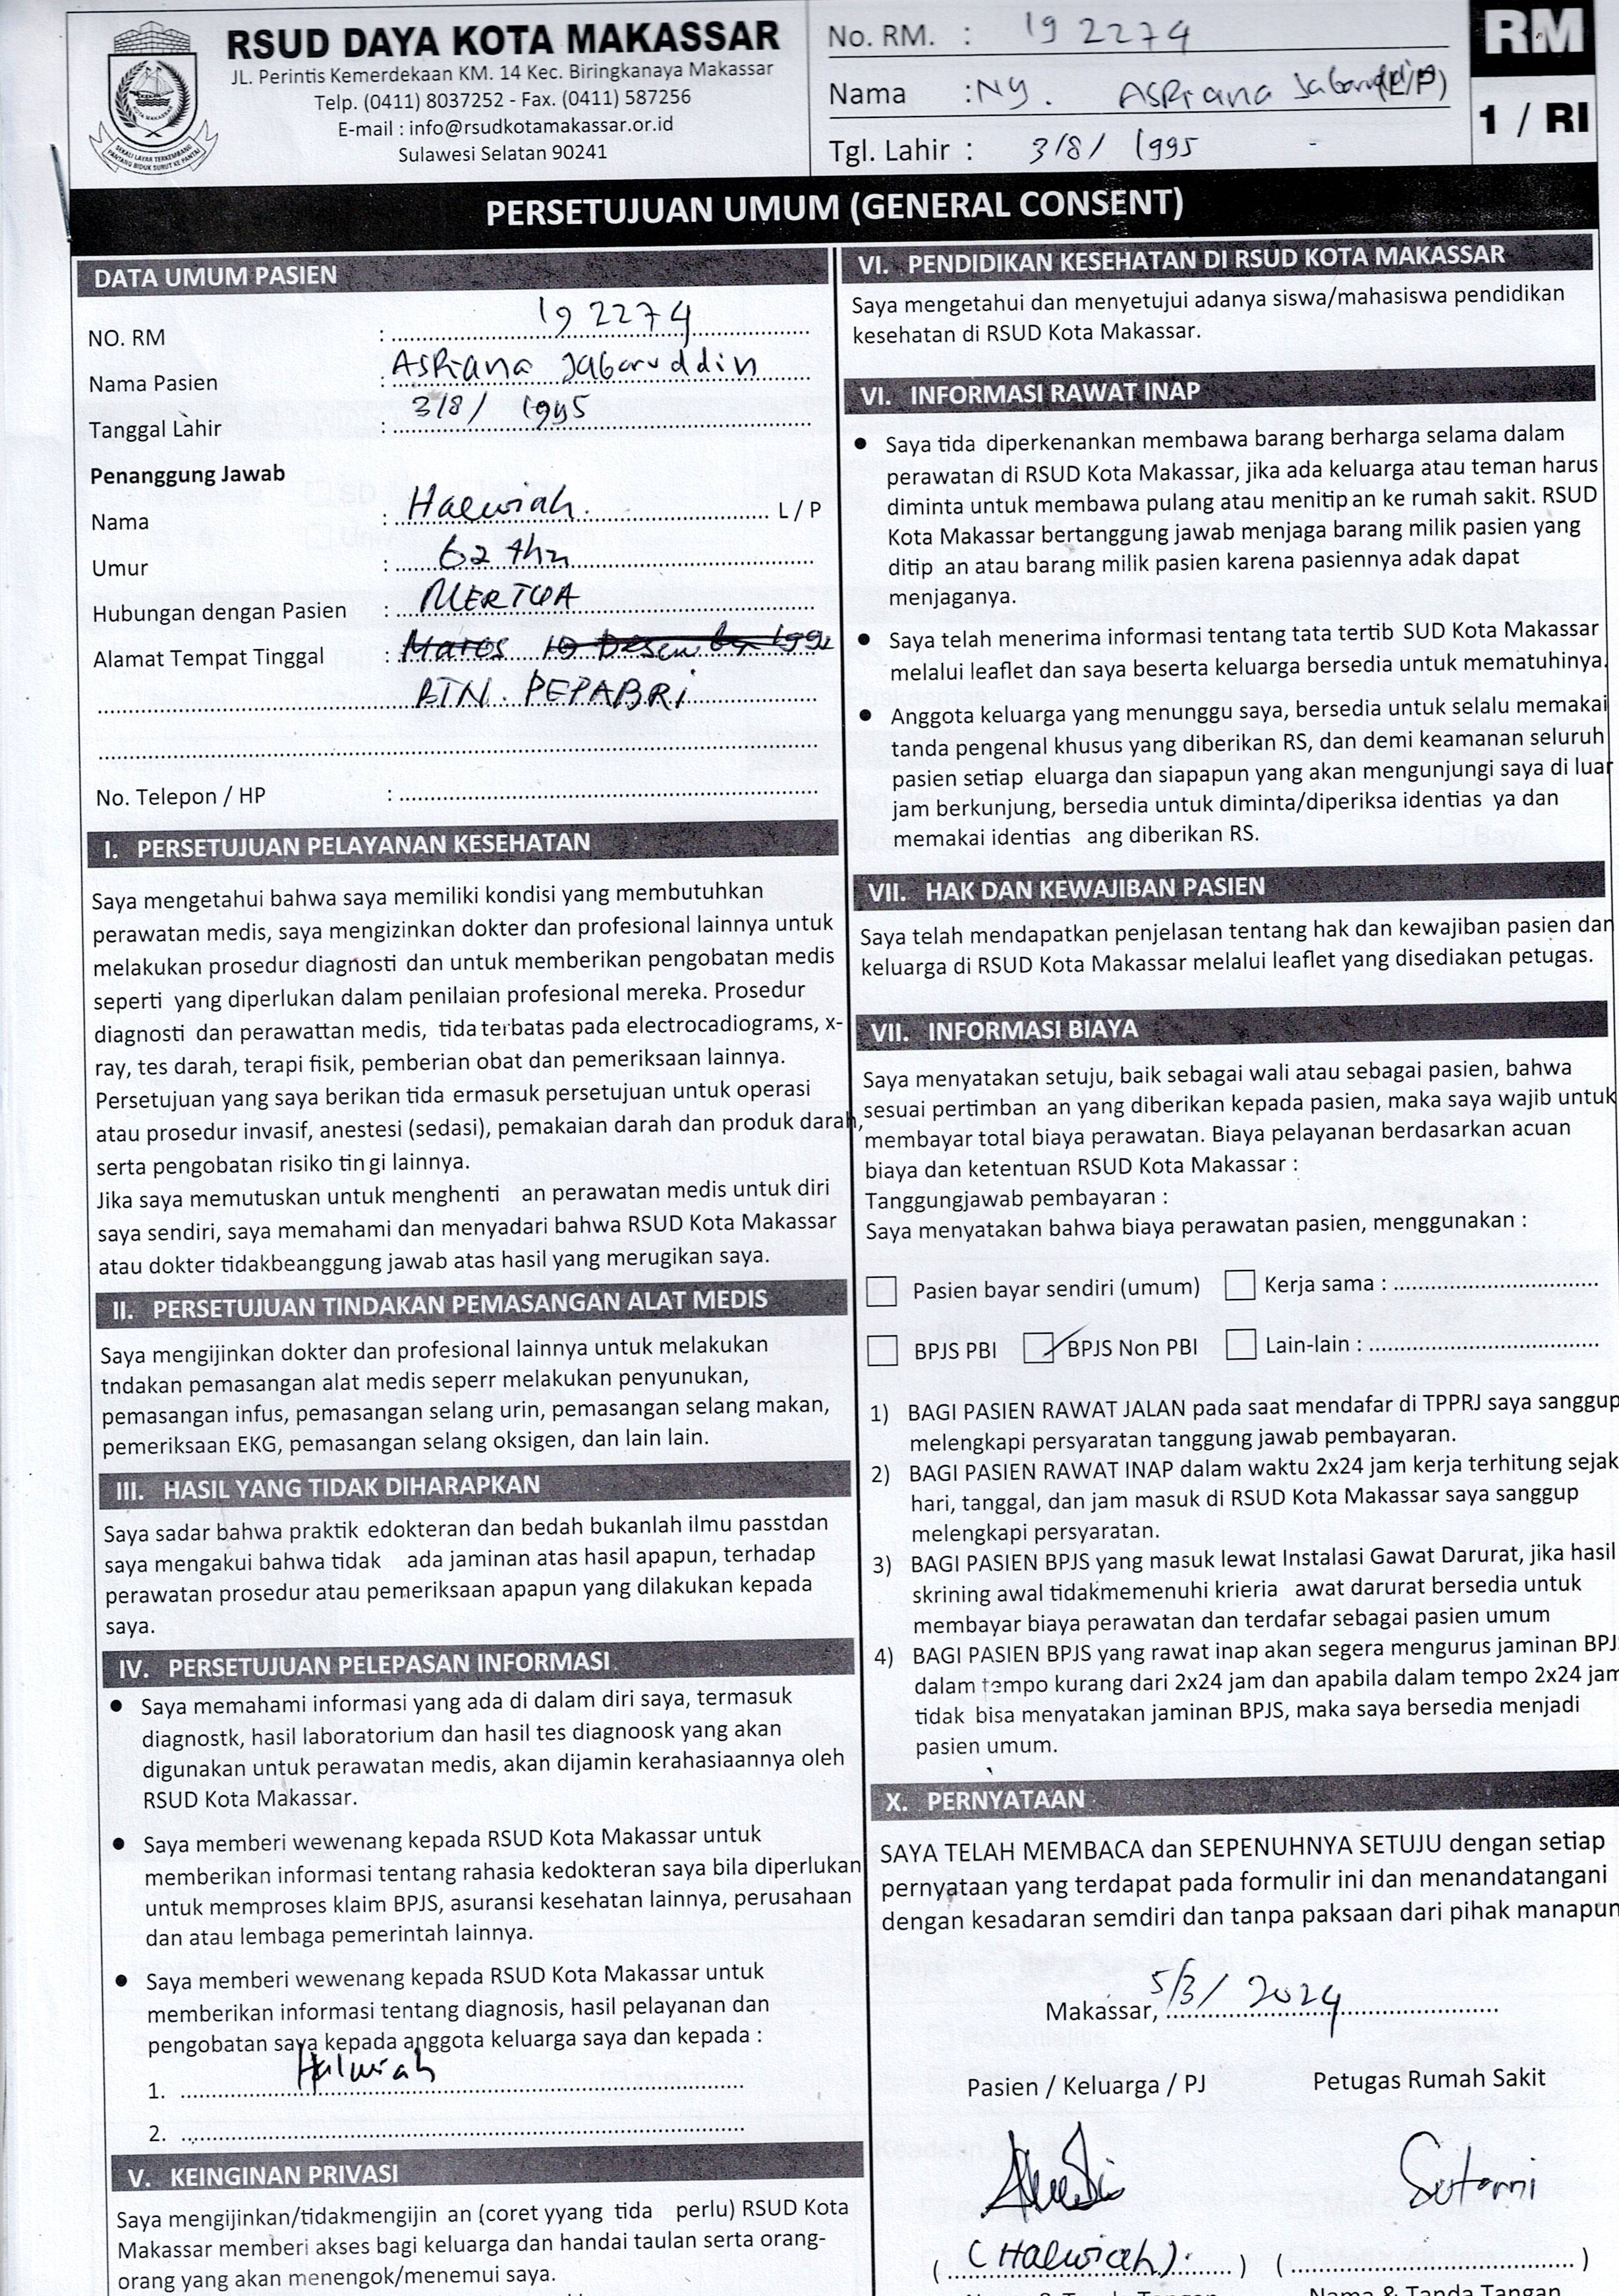 RSUD DAYA KOTA MAKASSAR
JL. Perintis Kemerdekaan KM. 14 Kec. Biringkanaya Makassar
Telp. (0411) 8037252 - Fax. (0411) 587256
E-mail : info@rsudkotamakassar.or.id
Sulawesi Selatan 90241
No. RM. : 192274
Nama : Ny. Aspiana Jabaruddin (L/P)
Tgl. Lahir : 3/8/ 1995
RM
1 / RI
PERSETUJUAN UMUM (GENERAL CONSENT)
DATA UMUM PASIEN
NO. RM : 192274
Nama Pasien : Aspiana Jabaruddin
Tanggal Lahir : 3/8/ 1995
Penanggung Jawab
Nama : Halwiah. L / P
Umur : 62 thn
Hubungan dengan Pasien : MERTUA
Alamat Tempat Tinggal : Maros 10 Desember
BTN. PEPABRI
No. Telepon / HP :
I. PERSETUJUAN PELAYANAN KESEHATAN
Saya mengetahui bahwa saya memiliki kondisi yang membutuhkan
perawatan medis, saya mengizinkan dokter dan profesional lainnya untuk
melakukan prosedur diagnosti dan untuk memberikan pengobatan medis
seperti yang diperlukan dalam penilaian profesional mereka. Prosedur
diagnosti dan perawattan medis, tida terbatas pada electrocadiograms, x-
ray, tes darah, terapi fisik, pemberian obat dan pemeriksaan lainnya.
Persetujuan yang saya berikan tida ermasuk persetujuan untuk operasi
atau prosedur invasif, anestesi (sedasi), pemakaian darah dan produk darah,
serta pengobatan risiko tin gi lainnya.
Jika saya memutuskan untuk menghenti an perawatan medis untuk diri
saya sendiri, saya memahami dan menyadari bahwa RSUD Kota Makassar
atau dokter tidakbeanggung jawab atas hasil yang merugikan saya.
II. PERSETUJUAN TINDAKAN PEMASANGAN ALAT MEDIS
Saya mengijinkan dokter dan profesional lainnya untuk melakukan
tndakan pemasangan alat medis seperr melakukan penyunukan,
pemasangan infus, pemasangan selang urin, pemasangan selang makan,
pemeriksaan EKG, pemasangan selang oksigen, dan lain lain.
III. HASIL YANG TIDAK DIHARAPKAN
Saya sadar bahwa praktik edokteran dan bedah bukanlah ilmu passtdan
saya mengakui bahwa tidak ada jaminan atas hasil apapun, terhadap
perawatan prosedur atau pemeriksaan apapun yang dilakukan kepada
saya.
IV. PERSETUJUAN PELEPASAN INFORMASI
• Saya memahami informasi yang ada di dalam diri saya, termasuk
diagnostk, hasil laboratorium dan hasil tes diagnoosk yang akan
digunakan untuk perawatan medis, akan dijamin kerahasiaannya oleh
RSUD Kota Makassar.
• Saya memberi wewenang kepada RSUD Kota Makassar untuk
memberikan informasi tentang rahasia kedokteran saya bila diperlukan
untuk memproses klaim BPJS, asuransi kesehatan lainnya, perusahaan
dan atau lembaga pemerintah lainnya.
• Saya memberi wewenang kepada RSUD Kota Makassar untuk
memberikan informasi tentang diagnosis, hasil pelayanan dan
pengobatan saya kepada anggota keluarga saya dan kepada :
1. Halwiah
2.
V. KEINGINAN PRIVASI
Saya mengijinkan/tidakmengijin an (coret yyang tida perlu) RSUD Kota
Makassar memberi akses bagi keluarga dan handai taulan serta orang-
orang yang akan menengok/menemui saya.
VI. PENDIDIKAN KESEHATAN DI RSUD KOTA MAKASSAR
Saya mengetahui dan menyetujui adanya siswa/mahasiswa pendidikan
kesehatan di RSUD Kota Makassar.
VI. INFORMASI RAWAT INAP
• Saya tida diperkenankan membawa barang berharga selama dalam
perawatan di RSUD Kota Makassar, jika ada keluarga atau teman harus
diminta untuk membawa pulang atau menitip an ke rumah sakit. RSUD
Kota Makassar bertanggung jawab menjaga barang milik pasien yang
ditip an atau barang milik pasien karena pasiennya adak dapat
menjaganya.
• Saya telah menerima informasi tentang tata tertib SUD Kota Makassar
melalui leaflet dan saya beserta keluarga bersedia untuk mematuhinya.
• Anggota keluarga yang menunggu saya, bersedia untuk selalu memakai
tanda pengenal khusus yang diberikan RS, dan demi keamanan seluruh
pasien setiap eluarga dan siapapun yang akan mengunjungi saya di luar
jam berkunjung, bersedia untuk diminta/diperiksa identias ya dan
memakai identias ang diberikan RS.
VII. HAK DAN KEWAJIBAN PASIEN
Saya telah mendapatkan penjelasan tentang hak dan kewajiban pasien dan
keluarga di RSUD Kota Makassar melalui leaflet yang disediakan petugas.
VII. INFORMASI BIAYA
Saya menyatakan setuju, baik sebagai wali atau sebagai pasien, bahwa
sesuai pertimban an yang diberikan kepada pasien, maka saya wajib untuk
membayar total biaya perawatan. Biaya pelayanan berdasarkan acuan
biaya dan ketentuan RSUD Kota Makassar :
Tanggungjawab pembayaran :
Saya menyatakan bahwa biaya perawatan pasien, menggunakan :
Pasien bayar sendiri (umum) Kerja sama :
BPJS PBI BPJS Non PBI Lain-lain :
1) BAGI PASIEN RAWAT JALAN pada saat mendafar di TPPRJ saya sanggup
melengkapi persyaratan tanggung jawab pembayaran.
2) BAGI PASIEN RAWAT INAP dalam waktu 2x24 jam kerja terhitung sejak
hari, tanggal, dan jam masuk di RSUD Kota Makassar saya sanggup
melengkapi persyaratan.
3) BAGI PASIEN BPJS yang masuk lewat Instalasi Gawat Darurat, jika hasil
skrining awal tidakmemenuhi krieria awat darurat bersedia untuk
membayar biaya perawatan dan terdafar sebagai pasien umum
4) BAGI PASIEN BPJS yang rawat inap akan segera mengurus jaminan BPJS
dalam tempo kurang dari 2x24 jam dan apabila dalam tempo 2x24 jam
tidak bisa menyatakan jaminan BPJS, maka saya bersedia menjadi
pasien umum.
X. PERNYATAAN
SAYA TELAH MEMBACA dan SEPENUHNYA SETUJU dengan setiap
pernyataan yang terdapat pada formulir ini dan menandatangani
dengan kesadaran semdiri dan tanpa paksaan dari pihak manapun
Makassar, 5/3/ 2024
Pasien / Keluarga / PJ Petugas Rumah Sakit
Sutarni
( (Halwiah). ) ( )
Nama & Tanda Tangan Nama & Tanda Tangan